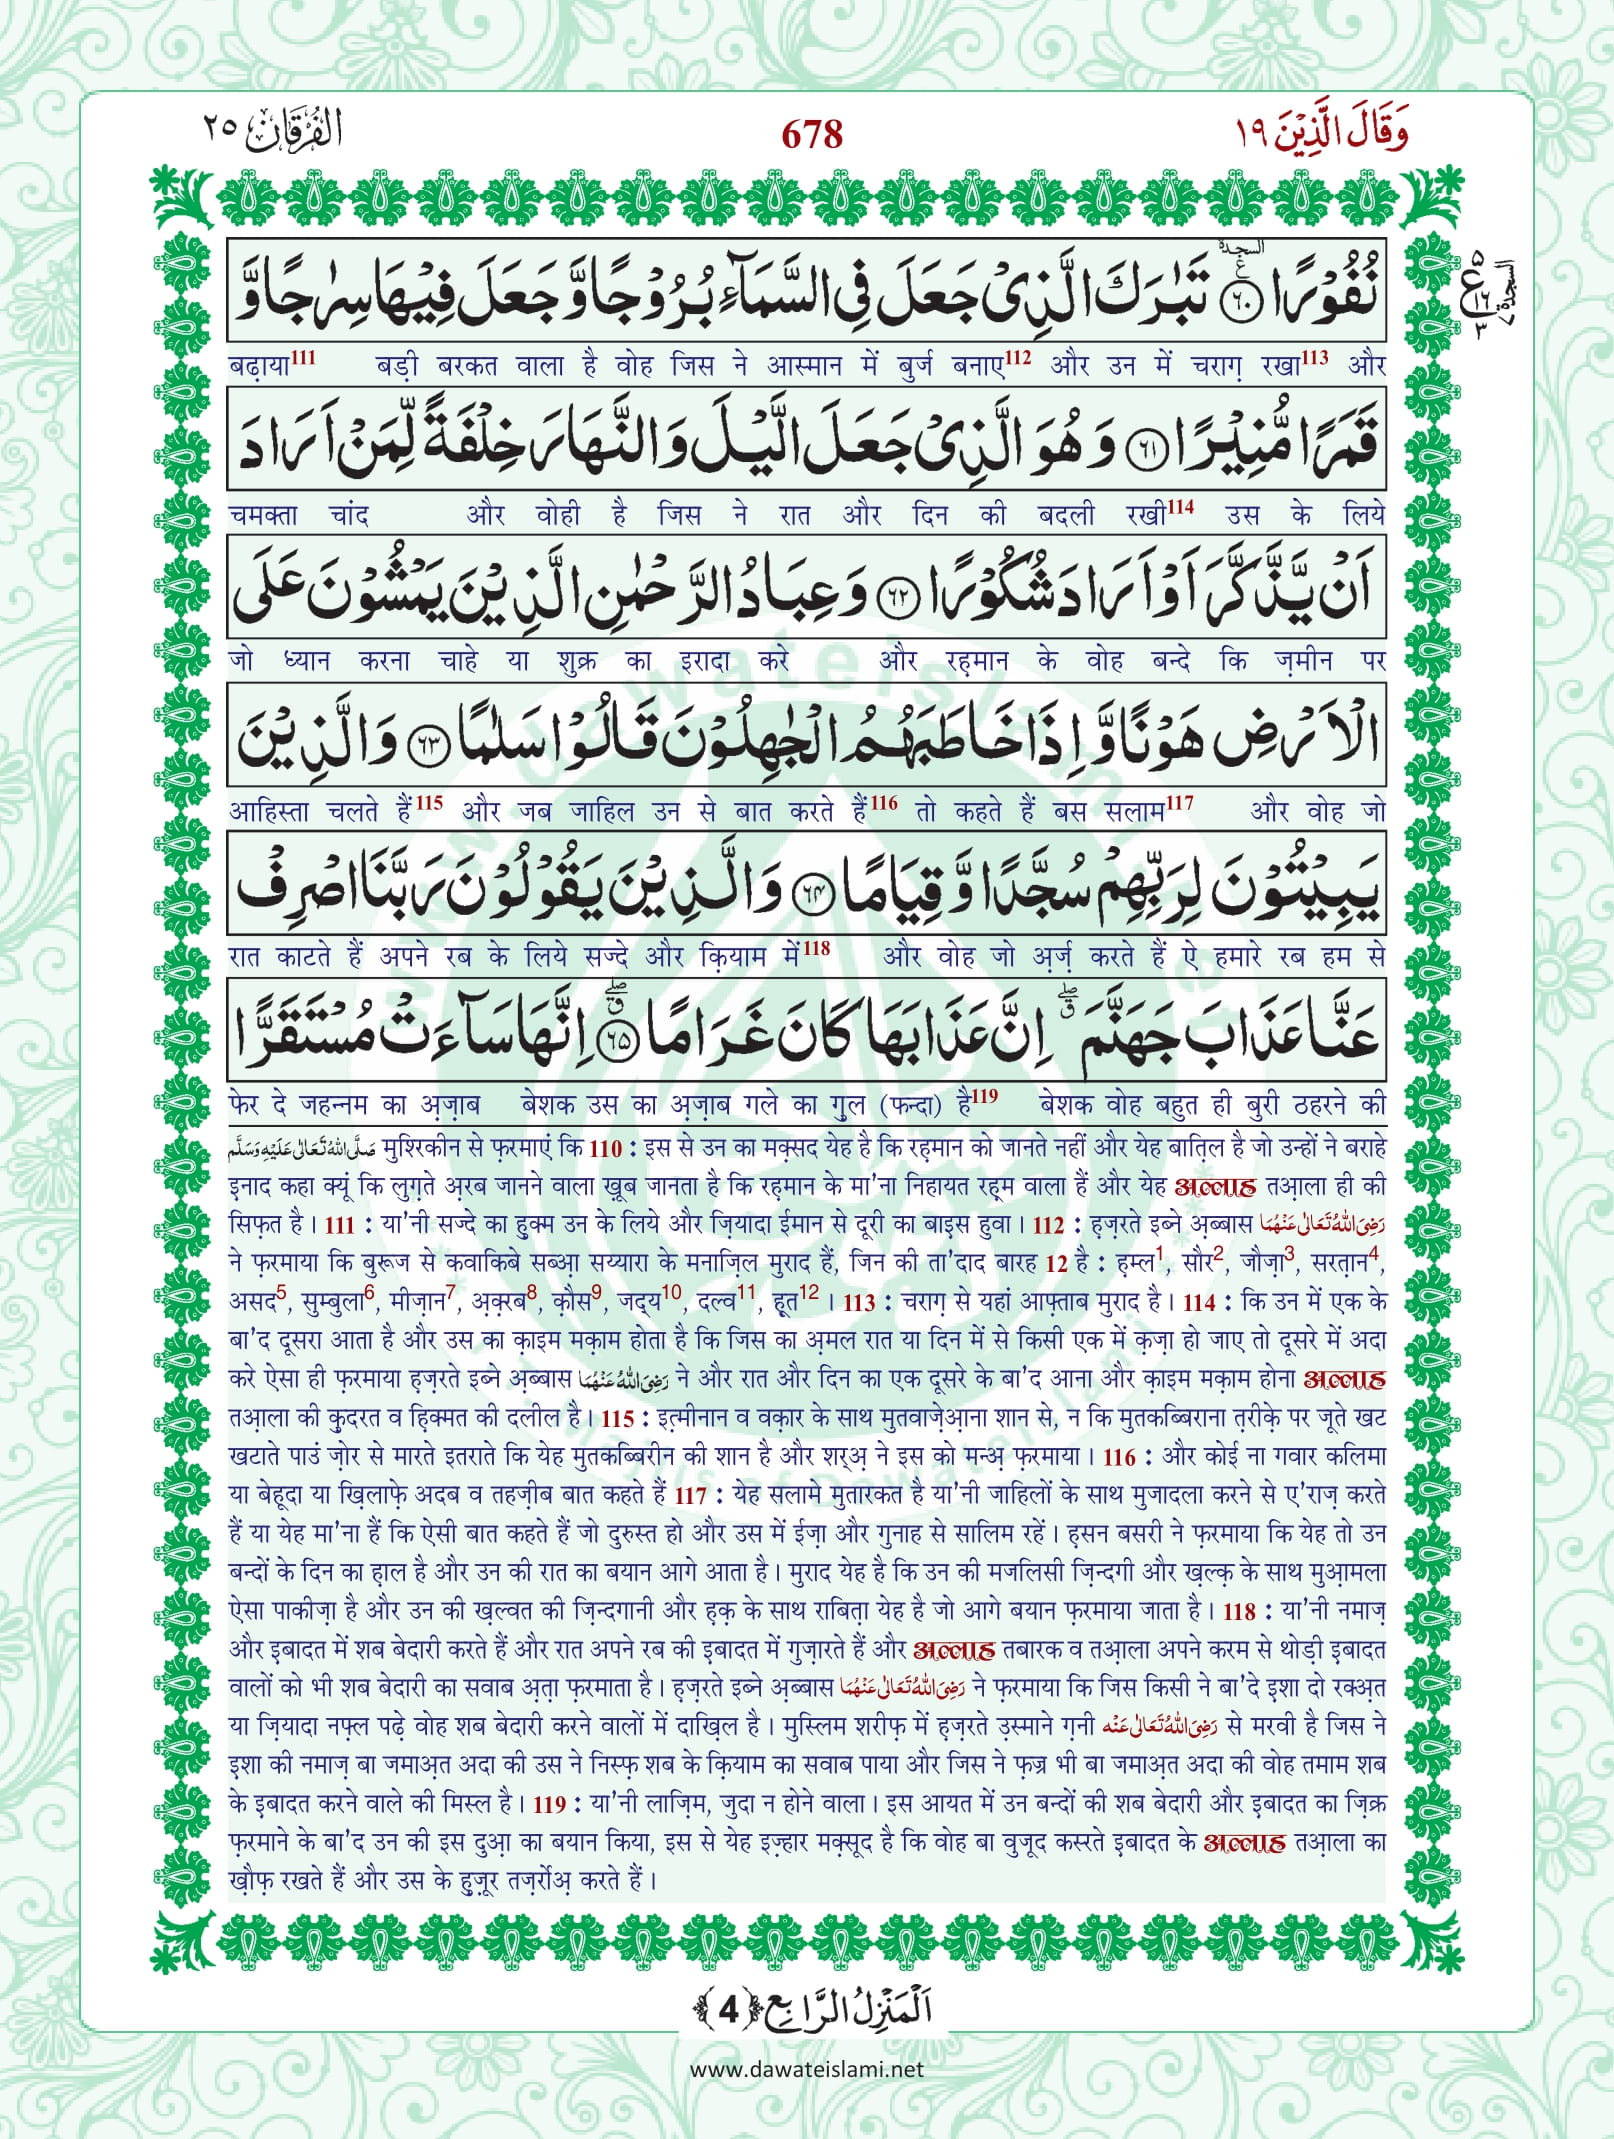 الفُرْقَان ٢٥
678
وَقَالَ الَّذِيْنَ ١٩
نُفُوْرًا ۩ ﴿٦٠﴾ تَبٰرَكَ الَّذِيْ جَعَلَ فِي السَّمَآءِ بُرُوْجًا وَّ جَعَلَ فِيْهَا سِرٰجًا وَّ
السجدة
ع ٥ ١٦ ٣ السجدة ٧
बढ़ाया111 बड़ी बरकत वाला है वोह जिस ने आस्मान में बुर्ज बनाए112 और उन में चराग़ रखा113 और
قَمَرًا مُّنِيْرًا ﴿٦١﴾ وَ هُوَ الَّذِيْ جَعَلَ الَّيْلَ وَ النَّهَارَ خِلْفَةً لِّمَنْ اَرَادَ
चमक्ता चांद और वोही है जिस ने रात और दिन की बदली रखी114 उस के लिये
اَنْ يَّذَّكَّرَ اَوْ اَرَادَ شُكُوْرًا ﴿٦٢﴾ وَ عِبَادُ الرَّحْمٰنِ الَّذِيْنَ يَمْشُوْنَ عَلَى
जो ध्यान करना चाहे या शुक्र का इरादा करे और रह़मान के वोह बन्दे कि ज़मीन पर
الْاَرْضِ هَوْنًا وَّ اِذَا خَاطَبَهُمُ الْجٰهِلُوْنَ قَالُوْا سَلٰمًا ﴿٦٣﴾ وَ الَّذِيْنَ
आहिस्ता चलते हैं115 और जब जाहिल उन से बात करते हैं116 तो कहते हैं बस सलाम117 और वोह जो
يَبِيْتُوْنَ لِرَبِّهِمْ سُجَّدًا وَّ قِيَامًا ﴿٦٤﴾ وَ الَّذِيْنَ يَقُوْلُوْنَ رَبَّنَا اصْرِفْ
रात काटते हैं अपने रब के लिये सज्दे और क़ियाम में118 और वोह जो अ़र्ज़ करते हैं ऐ हमारे रब हम से
عَنَّا عَذَابَ جَهَنَّمَ ۖۗ اِنَّ عَذَابَهَا كَانَ غَرَامًا ﴿٦٥﴾ۖۗ اِنَّهَا سَآءَتْ مُسْتَقَرًّا
फेर दे जहन्नम का अ़ज़ाब बेशक उस का अ़ज़ाब गले का गु़ल (फन्दा) है119 बेशक वोह बहुत ही बुरी ठहरने की
صَلَّى اللهُ تَعَالٰى عَلَيْهِ وَسَلَّم मुश्रिकीन से फ़रमाएं कि 110 : इस से उन का मक़्सद येह है कि रह़मान को जानते नहीं और येह बात़िल है जो उन्हों ने बराहे
इनाद कहा क्यूं कि लुग़ते अ़रब जानने वाला ख़ूब जानता है कि रह़मान के मा'ना निहायत रह़्म वाला हैं और येह अल्लाह तआ़ला ही की
सिफ़त है। 111 : या'नी सज्दे का हु़क्म उन के लिये और ज़ियादा ईमान से दूरी का बाइ़स हुवा। 112 : ह़ज़रते इब्ने अ़ब्बास رَضِىَ اللهُ تَعَالٰى عَنْهُمَا
ने फ़रमाया कि बुरूज से कवाकिबे सब्आ़ सय्यारा के मनाज़िल मुराद हैं, जिन की ता'दाद बारह 12 है : ह़म्ल1, सौर2, जौज़ा3, सरत़ान4,
असद5, सुम्बुला6, मीज़ान7, अ़क़्रब8, क़ौस9, जद्य10, दल्व11, हू़त12 । 113 : चराग़ से यहां आफ़्ताब मुराद है। 114 : कि उन में एक के
बा'द दूसरा आता है और उस का क़ाइम मक़ाम होता है कि जिस का अ़मल रात या दिन में से किसी एक में क़ज़ा हो जाए तो दूसरे में अदा
करे ऐसा ही फ़रमाया ह़ज़रते इब्ने अ़ब्बास رَضِىَ اللهُ عَنْهُمَا ने और रात और दिन का एक दूसरे के बा'द आना और क़ाइम मक़ाम होना अल्लाह
तआ़ला की क़ुदरत व ह़िक्मत की दलील है। 115 : इत़्मीनान व वक़ार के साथ मुतवाज़ेआ़ना शान से, न कि मुतकब्बिराना त़रीक़े पर जूते खट
खटाते पाउं ज़ोर से मारते इतराते कि येह मुतकब्बिरीन की शान है और शर्अ़ ने इस को मन्अ़ फ़रमाया। 116 : और कोई ना गवार कलिमा
या बेहूदा या ख़िलाफ़े अदब व तहज़ीब बात कहते हैं 117 : येह सलामे मुतारकत है या'नी जाहिलों के साथ मुजादला करने से ए'राज़ करते
हैं या येह मा'ना हैं कि ऐसी बात कहते हैं जो दुरुस्त हो और उस में ईज़ा और गुनाह से सालिम रहें। ह़सन बसरी ने फ़रमाया कि येह तो उन
बन्दों के दिन का ह़ाल है और उन की रात का बयान आगे आता है। मुराद येह है कि उन की मजलिसी ज़िन्दगी और ख़ल्क़ के साथ मुआ़मला
ऐसा पाकीज़ा है और उन की ख़ल्वत की ज़िन्दगानी और ह़क़ के साथ राबित़ा येह है जो आगे बयान फ़रमाया जाता है। 118 : या'नी नमाज़
और इबादत में शब बेदारी करते हैं और रात अपने रब की इ़बादत में गुज़ारते हैं और अल्लाह तबारक व तआ़ला अपने करम से थोड़ी इबादत
वालों को भी शब बेदारी का सवाब अ़त़ा फ़रमाता है। ह़ज़रते इब्ने अ़ब्बास رَضِىَ اللهُ تَعَالٰى عَنْهُمَا ने फ़रमाया कि जिस किसी ने बा'दे इशा दो रक्अ़त
या ज़ियादा नफ़्ल पढ़े वोह शब बेदारी करने वालों में दाख़िल है। मुस्लिम शरीफ़ में ह़ज़रते उ़स्माने ग़नी رَضِىَ اللهُ تَعَالٰى عَنْه से मरवी है जिस ने
इशा की नमाज़ बा जमाअ़त अदा की उस ने निस्फ़ शब के क़ियाम का सवाब पाया और जिस ने फ़ज्र भी बा जमाअ़त अदा की वोह तमाम शब
के इबादत करने वाले की मिस्ल है। 119 : या'नी लाज़िम, जुदा न होने वाला। इस आयत में उन बन्दों की शब बेदारी और इबादत का ज़िक्र
फ़रमाने के बा'द उन की इस दुआ़ का बयान किया, इस से येह इज़्हार मक़्सूद है कि वोह बा वुजूद कस्रते इबादत के अल्लाह तआ़ला का
ख़ौफ़ रखते हैं और उस के हु़ज़ूर तज़र्रोअ़ करते हैं।
اَلْمَنْزِلُ الرَّابِع ﴿4﴾
www.dawateislami.net